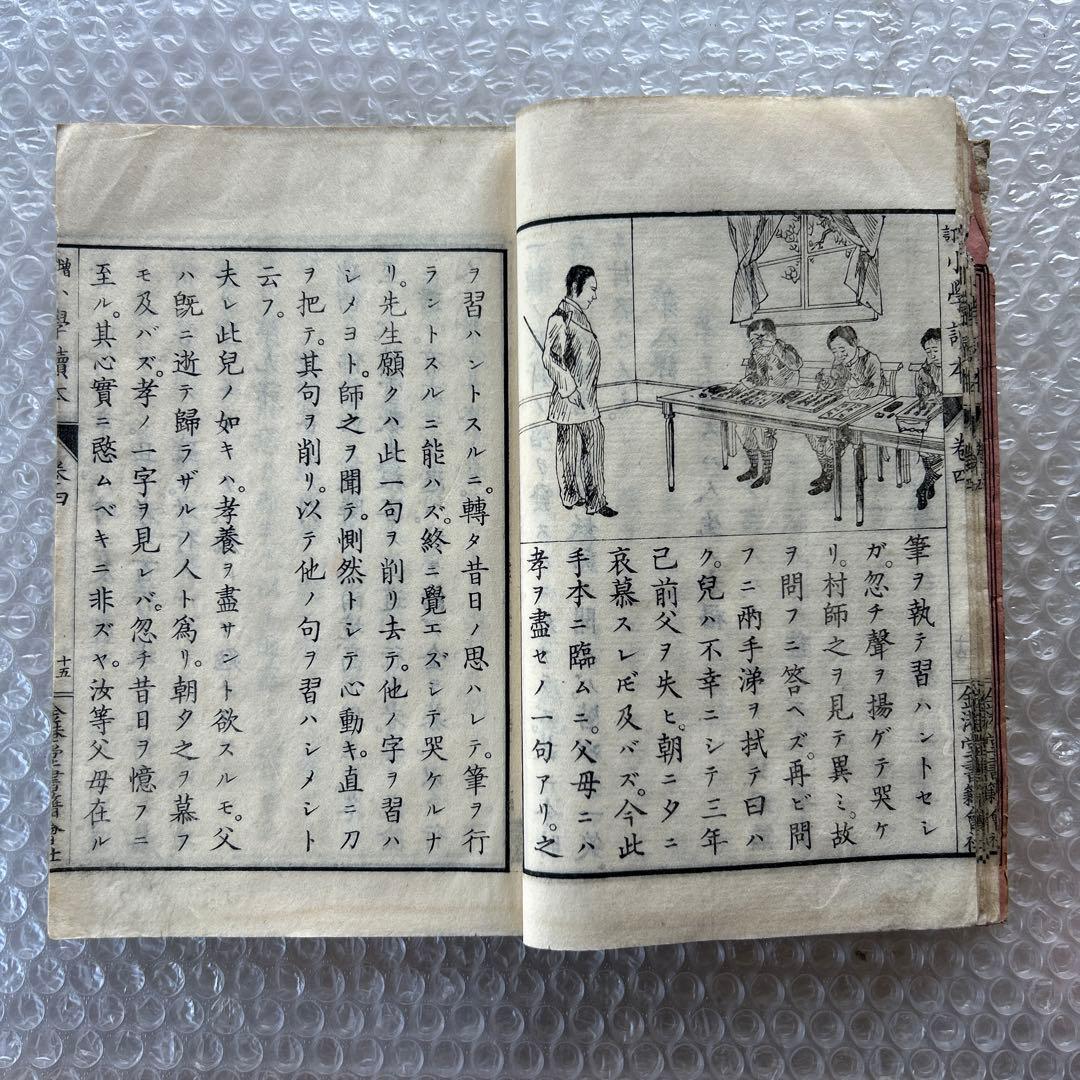 小學讀本
卷四
筆ヲ執テ習ハントセシ
ガ。忽チ聲ヲ揚ゲテ哭ケ
リ。村師之ヲ見テ異ミ。故
ヲ問フニ答ヘズ。再ビ問
フニ兩手涕ヲ拭テ曰ハ
ク。兒ハ不幸ニシテ三年
己前父ヲ失ヒ。朝ニタニ
哀慕スレㇳモ及バズ。今此
手本ニ臨ムニ。父母ニハ
孝ヲ盡セノ一句アリ。之
ヲ習ハントスルニ。轉タ昔日ノ思ハレテ。筆ヲ行
ラントスルニ能ハズ。終ニ覺エズシテ哭ケルナ
リ。先生願クハ此一句ヲ削リ去テ。他ノ字ヲ習ハ
シメヨト。師之ヲ聞テ。惻然トシテ心動キ。直ニ刀
ヲ把テ。其句ヲ削リ。以テ他ノ句ヲ習ハシメシト
云フ。
夫レ此兒ノ如キハ。孝養ヲ盡サント欲スルモ。父
ハ旣ニ逝テ歸ラザルノ人ト爲リ。朝夕之ヲ慕フ
モ及バズ。孝ノ一字ヲ見レバ。忽チ昔日ヲ憶フニ
至ル。其心實ニ愍ムベキニ非ズヤ。汝等父母在ル
學讀本
卷四
十五